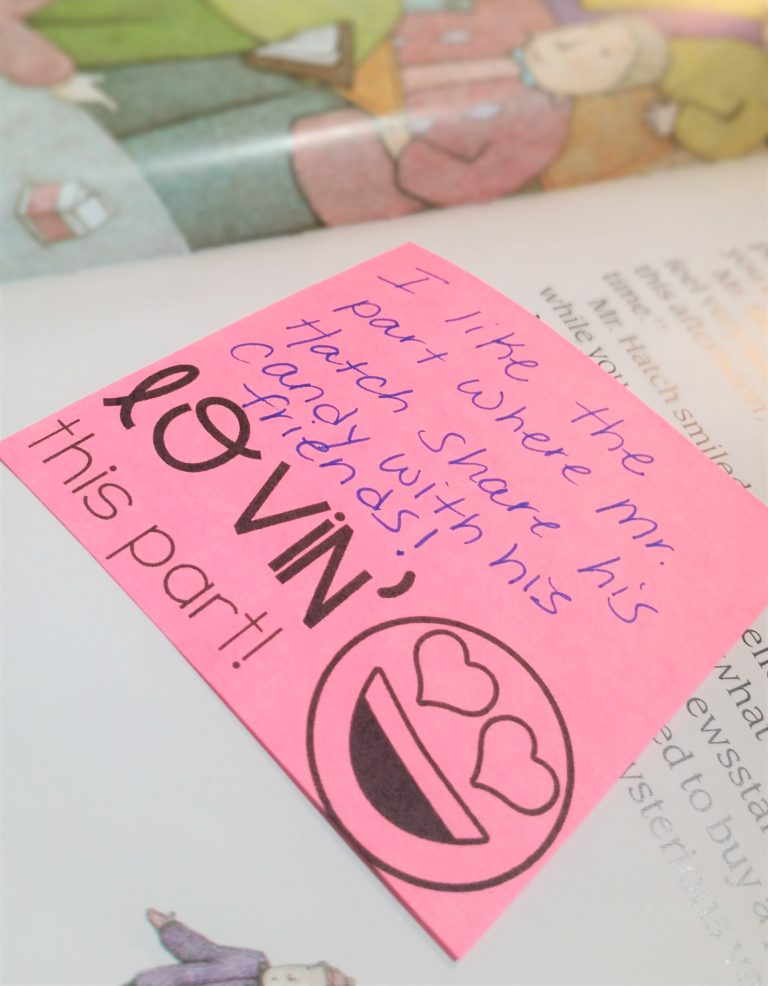 I like the
part where mr.
Hatch share his
candy with his
friends!
lOViN'
this part!
you
Mr.
feel very
this afternoon,
time.
Mr. Hatch smiled
while you
what
to buy a